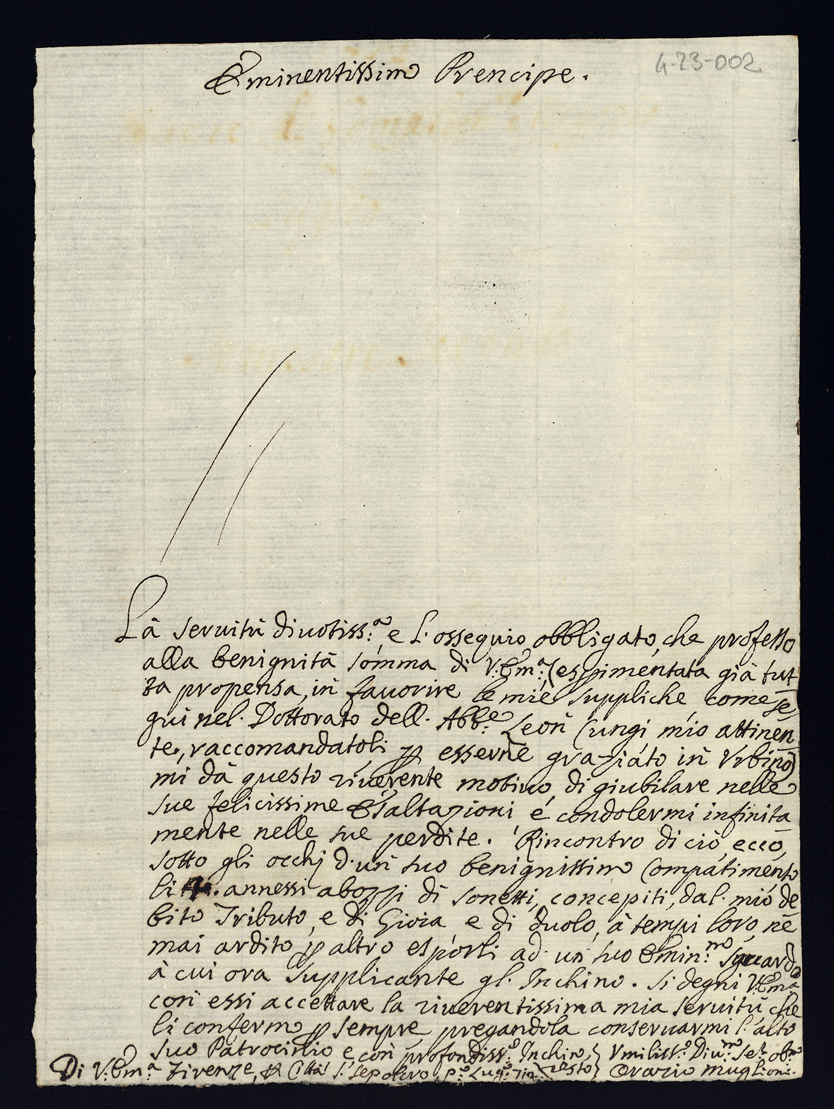 4-23-002
Eminentissimo Prencipe.
La seruitù diuotiss.ª e l'ossequio obbligato, che professo
alla benignità somma di V.Em.ª (esp̱imentata già tut
ta propensa, in fauorire le mie suppliche come se
guì nel Dottorato dell'Abb.e Leon Cungi mio attinen
te, raccomandatoli p̱ esserne graziato in Vrbino)
mi dà questo riuerente motiuo di giubilare nelle
sue felicissime Esaltazioni e condolermi infinita
mente nelle sue perdite. Rincontro di ciò ecco,
sotto gli occhj d'un suo benignissimo Compatimento
li annessi abozzi di sonetti, concepiti, dal mio de
bito Tributo, e di Gioia e di duolo, à tempi loro, nè
mai ardito p̱ altro esporli ad un suo Emin.mo Sguardo
à cui ora supplicante gl'Inchino. Si degni V.Em.ª
con essi accettare la riuerentissima mia seruitù che
li confermo p̱ sempre pregandola conseruarmi l'alto
suo Patrocinio e con profondiss.o Inchino
Vmiliss.o Diu.mo Se.r ob.mo
Di V.Em.ª Firenze, p̱ Città S. Sepolcro P.o Lug.o
Orazio Muglioni